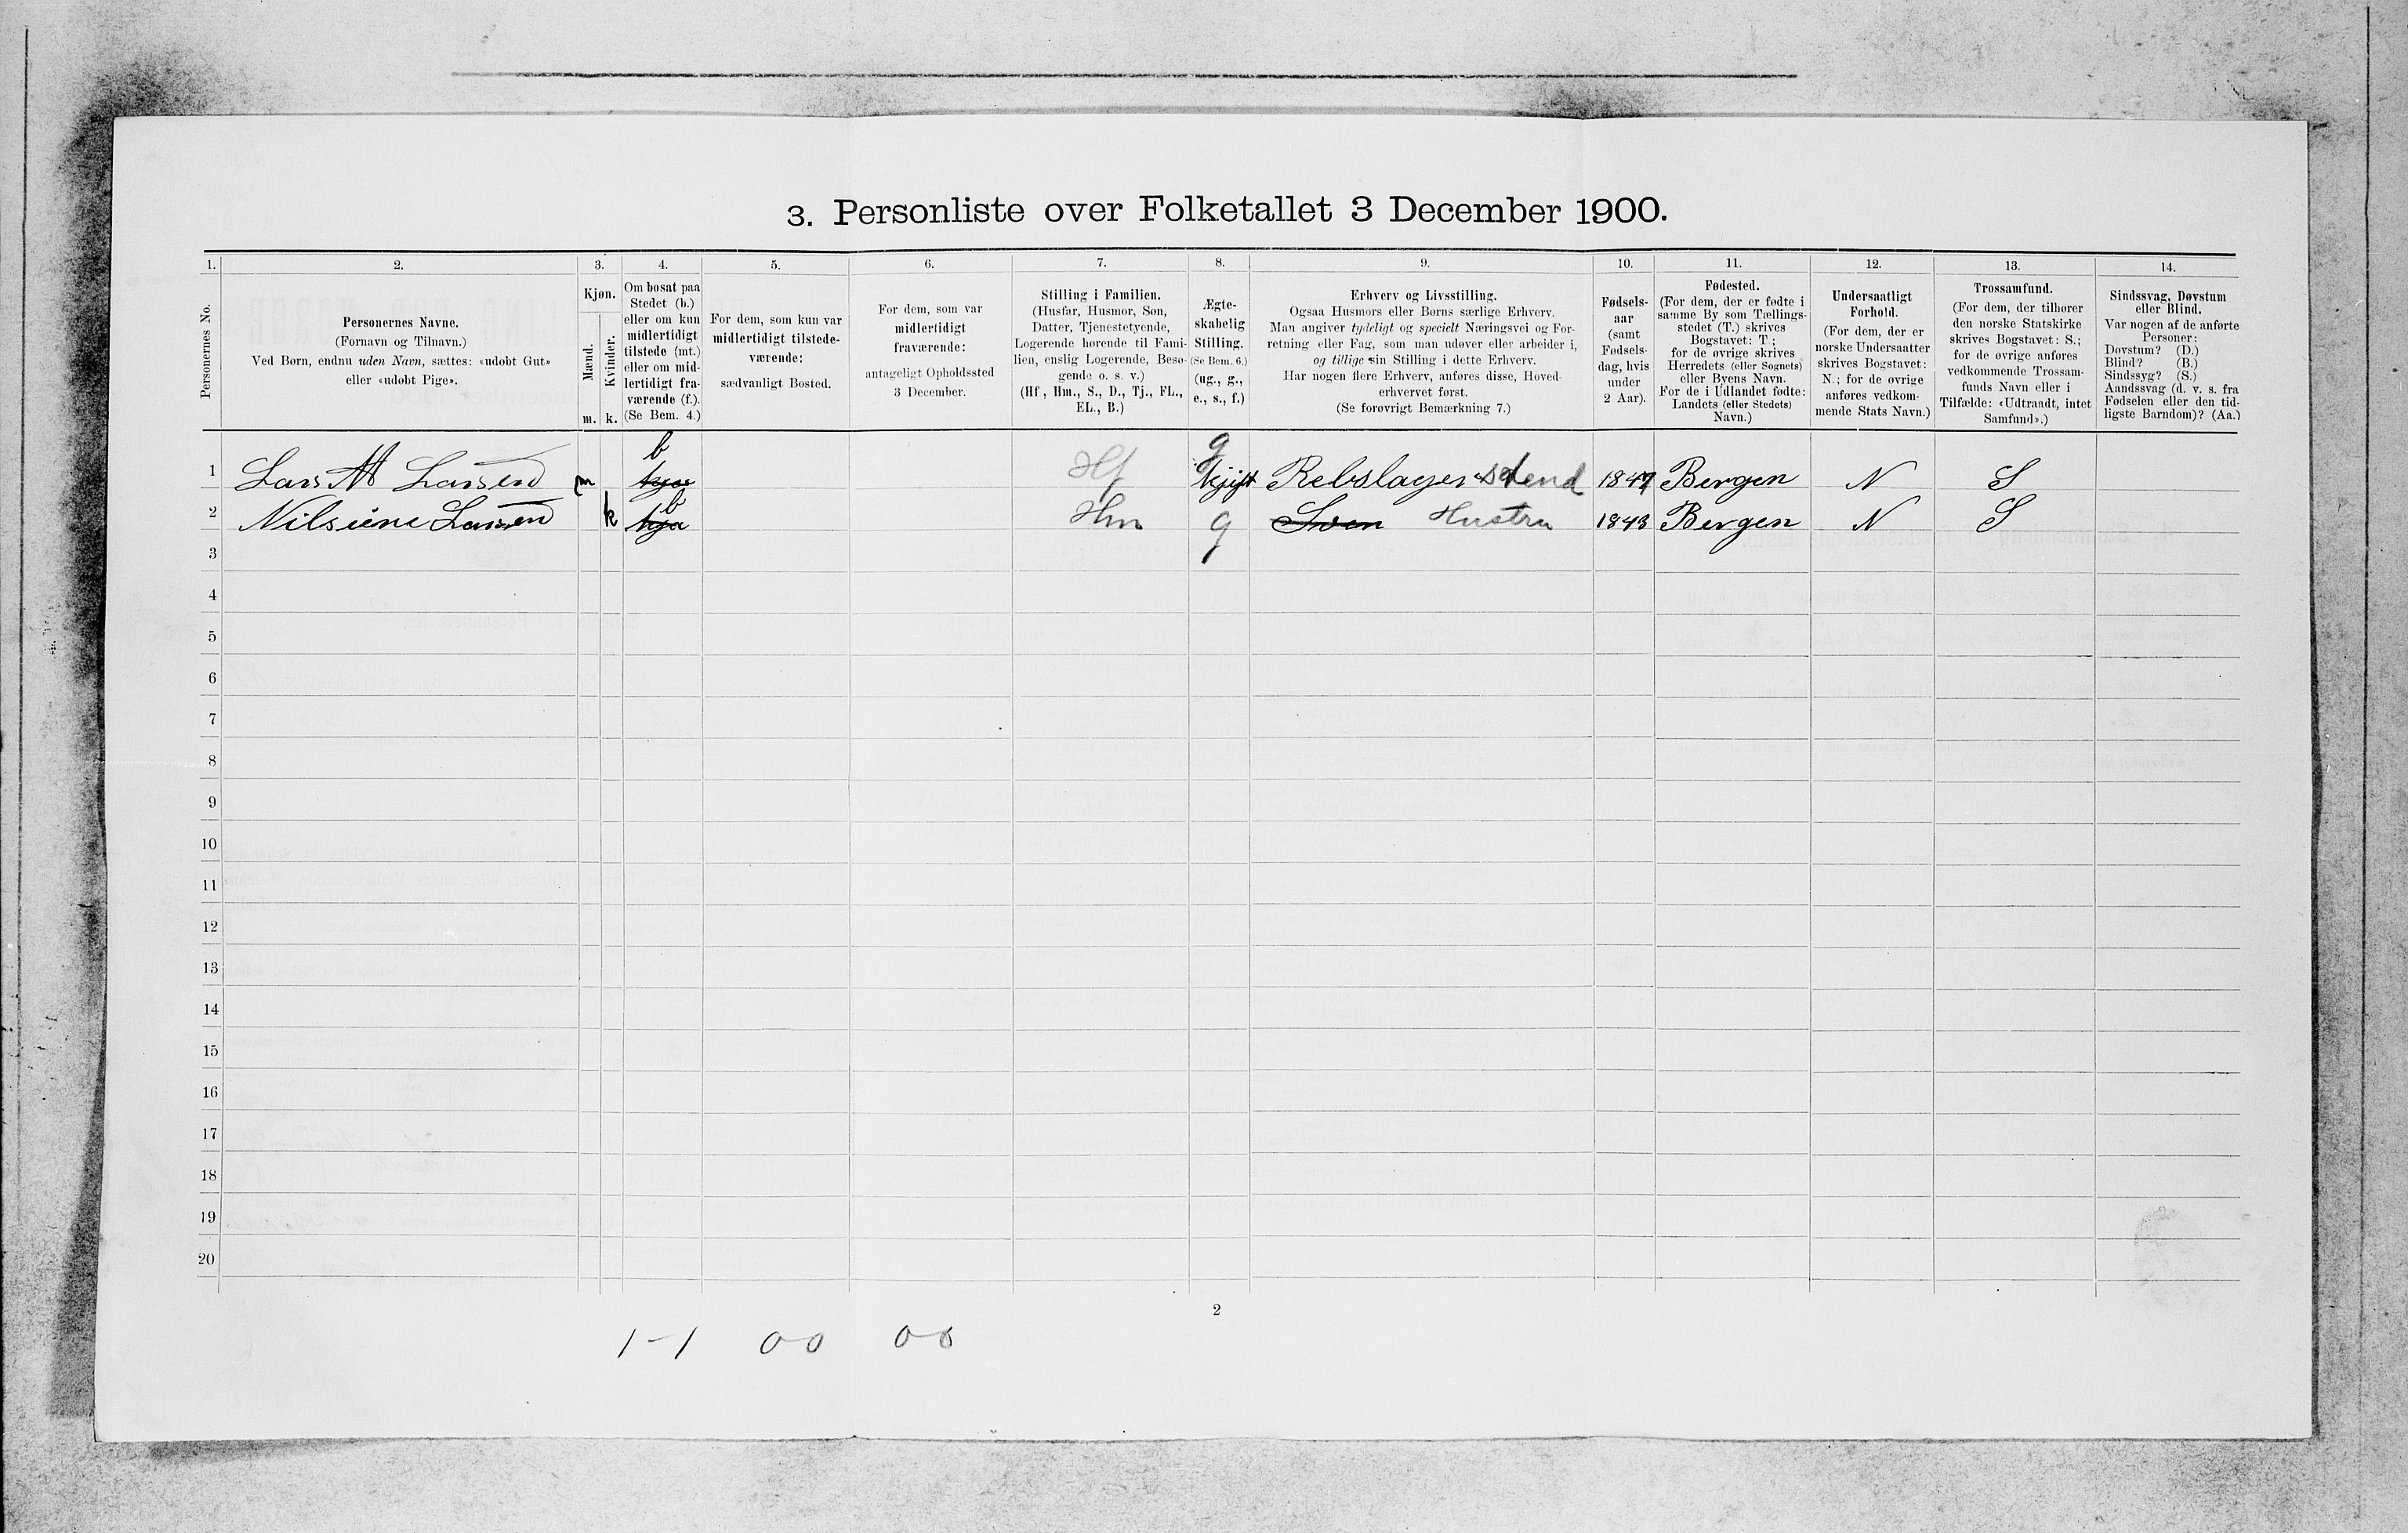 3. Personliste over Folketallet 3 December 1900.
1. 2. 3. 4. 5. 6. 7. 8. 9. 10. 11. 12. 13. 14.
Personernes No.
Personernes Navne.
(Fornavn og Tilnavn.)
Ved Børn, endnu uden Navn, sættes: «udøbt Gut»
eller «udøbt Pige».
Kjøn.
Mænd.
Kvinder.
m. k.
Om bosat paa
Stedet (b.)
eller om kun
midlertidigt
tilstede (mt.)
eller om mid-
lertidigt fra-
værende (f.).
(Se Bem. 4.)
For dem, som kun var
midlertidigt tilstede-
værende:
sædvanligt Bosted.
For dem, som var
midlertidigt
fraværende:
antageligt Opholdssted
3 December.
Stilling i Familien.
(Husfar, Husmor, Søn,
Datter, Tjenestetyende,
Logerende hørende til Fami-
lien, enslig Logerende, Besø-
gende o. s. v.)
(Hf., Hm., S., D., Tj., FL.,
EL., B.)
Ægte-
skabelig
Stilling.
(Se Bem. 6.)
(ug., g.,
e., s., f.)
Erhverv og Livsstilling.
Ogsaa Husmors eller Børns særlige Erhverv.
Man angiver tydeligt og specielt Næringsvei og For-
retning eller Fag, som man udøver eller arbeider i,
og tillige sin Stilling i dette Erhverv.
Har nogen flere Erhverv, anføres disse, Hoved-
erhvervet først.
(Se forøvrigt Bemærkning 7.)
Fødsels-
aar
(samt
Fødsels-
dag, hvis
under
2 Aar).
Fødested.
(For dem, der er fødte i
samme By som Tællings-
stedet (T.) skrives
Bogstavet: T;
for de øvrige skrives
Herredets (eller Sognets)
eller Byens Navn.
For de i Udlandet fødte:
Landets (eller Stedets)
Navn.)
Undersaatligt
Forhold.
(For dem, der er
norske Undersaatter
skrives Bogstavet:
N.; for de øvrige
anføres vedkom-
mende Stats Navn.)
Trossamfund.
(For dem, der tilhører
den norske Statskirke
skrives Bogstavet: S.;
for de øvrige anføres
vedkommende Trossam-
funds Navn eller i
Tilfælde: «Udtraadt, intet
Samfund».)
Sindssvag, Døvstum
eller Blind.
Var nogen af de anførte
Personer:
Døvstum? (D.)
Blind? (B.)
Sindssyg? (S.)
Aandssvag (d. v. s. fra
Fødselen eller den tid-
ligste Barndom)? (Aa.)
b g
1 Lars M Larsen m Hf Gift Rebslager svend 1847 Bergen N S
2 Nilsine Larsen k b Hm g Hustru 1843 Bergen N S
3
4
5
6
7
8
9
10
11
12
13
14
15
16
17
18
19
20
2
1-1 00 00